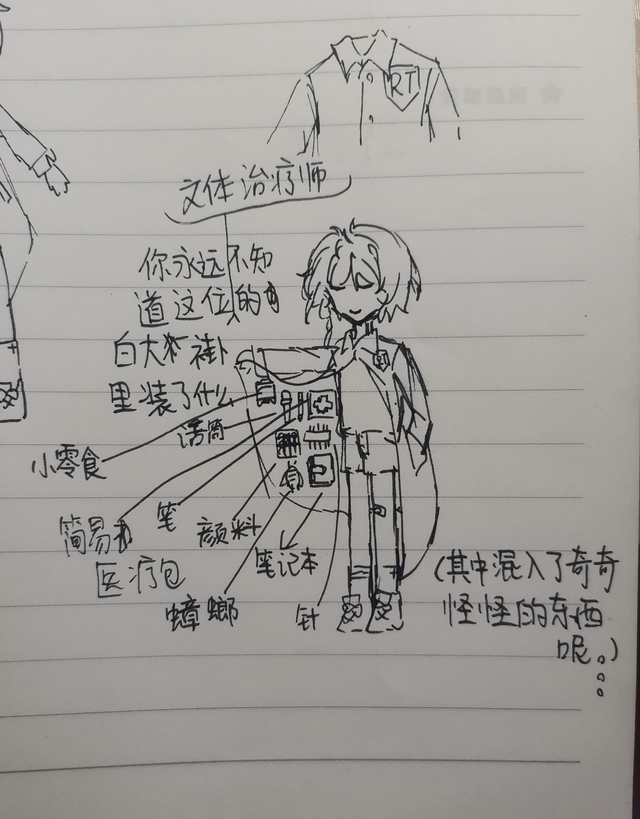 RT
文体治疗师
你永远不知
道这位的
白大褂
里装了什么
小零食
话筒
笔
简易
医疗包
颜料
笔记本
蟑螂
针
(其中混入了奇奇
怪怪的东西
呢。)